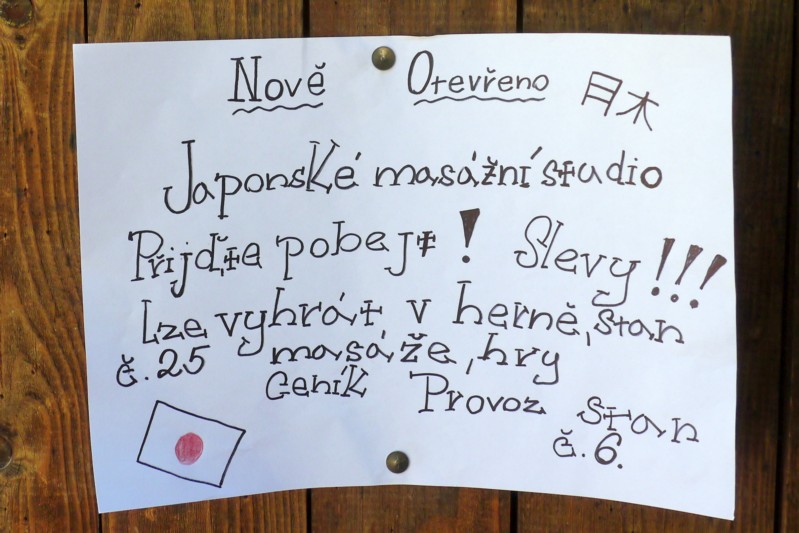 Nově Otevřeno 月木
Japonské masážní studio
Přijďte pobejt! Slevy!!!
Lze vyhrát v herně, stan
č. 25 masáže, hry
Ceník Provoz stan
č. 6.